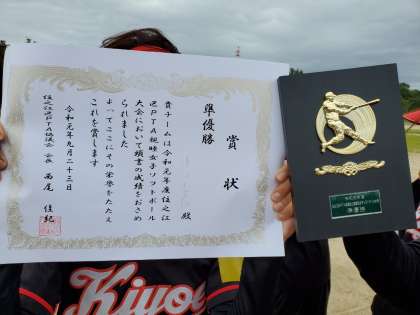 賞状
準優勝
殿
貴チームは令和元年度住之江
区PTA親睦女子ソフトボール
大会において頭書の成績をおさめ
られました
よってここにその栄誉をたたえ
これを賞します
令和元年九月二十三日
住之江区PTA協議会 会長 西尾 佳紀
準優勝
Kiyo